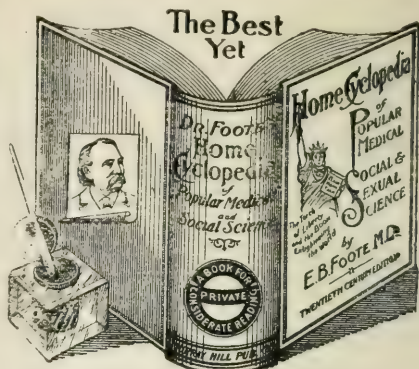 The Best
Yet
Dr. Foote's
Home
Cyclopedia
of
Popular Medical
and
Social Science
A BOOK FOR
PRIVATE
CONSIDERATE READING
HILL PUB.
Home Cyclopedia
of
POPULAR
MEDICAL
SOCIAL &
SEXUAL
SCIENCE
The Torch
of Liberty
and the Book
Enlightening
the World
by
E.B. FOOTE M.D.
TWENTIETH CENTURY EDITION